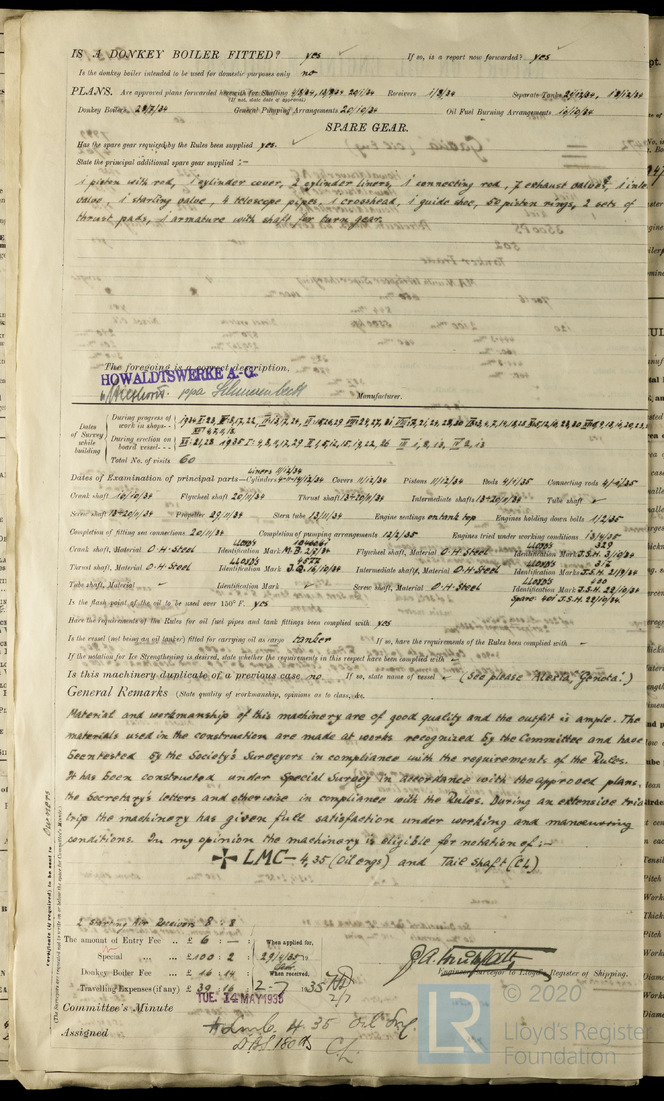 IS A DONKEY BOILER FITTED? yes If so, is a report now forwarded? yes
Is the donkey boiler intended to be used for domestic purposes only no
PLANS. Are approved plans forwarded herewith for Shafting Receivers 1/3/34 Separate Tanks 13/12/34
(If not, state date of approval)
Donkey Boilers 28/7/34 General Pumping Arrangements 20/10/34 Oil Fuel Burning Arrangements 10/10/34
SPARE GEAR.
Has the spare gear required by the Rules been supplied yes.
State the principal additional spare gear supplied :-
1 piston with rod, 1 cylinder cover, 2 cylinder liners, 1 connecting rod, 7 exhaust valves, 1 inlet
valve, 1 starting valve, 6 telescope pipes, 1 crosshead, 1 guide shoe, 50 piston rings, 2 sets of
thrust pads, 1 armature with shaft for turn gear.
The foregoing is a correct description,
HOWALDTSWERKE A.-G.
Manufacturer.
Dates of Survey while building
During progress of work in shops--
During erection on board vessel--- 1935
Total No. of visits 60
Liners 11/12/34
Dates of Examination of principal parts—Cylinders Covers 11/12/34 Pistons 11/12/34 Rods 4/1/35 Connecting rods
Crank shaft 16/10/34 Flywheel shaft 20/11/34 Thrust shaft 13-20/11/34 Intermediate shafts 13-20/11/34 Tube shaft
Screw shaft 13-20/11/34 Propeller 29/11/34 Stern tube 13/11/34 Engine seatings on tank top Engines holding down bolts 1/2/35
Completion of fitting sea connections 20/11/34 Completion of pumping arrangements 13/2/35 Engines tried under working conditions 13/4/35
Crank shaft, Material O.H. Steel Identification Mark LLOYD'S Flywheel shaft, Material O.H. Steel Identification Mark LLOYD'S 329 J.S.H. 3/10/34
Thrust shaft, Material O.H. Steel Identification Mark LLOYD'S 16/10/34 Intermediate shafts, Material O.H. Steel Identification Marks LLOYD'S J.S.H. 21/9/34
Tube shaft, Material Identification Mark Screw shaft, Material O.H. Steel Identification Mark LLOYD'S 400 J.S.H. 23/10/34
Spare: 401 J.S.H. 23/10/34
Is the flash point of the oil to be used over 150° F. yes
Have the requirements of the Rules for oil fuel pipes and tank fittings been complied with yes
Is the vessel (not being an oil tanker) fitted for carrying oil as cargo tanker If so, have the requirements of the Rules been complied with -
If the notation for Ice Strengthening is desired, state whether the requirements in this respect have been complied with -
Is this machinery duplicate of a previous case no If so, state name of vessel (See please
General Remarks (State quality of workmanship, opinions as to class, &c.
Material and workmanship of this machinery are of good quality and the outfit is ample. The
materials used in the construction are made at works recognized by the Committee and have
been tested by the Society's Surveyors in compliance with the requirements of the Rules.
It has been constructed under Special Survey in accordance with the approved plans,
the Secretary's letters and otherwise in compliance with the Rules. During an extensive trial
trip the machinery has given full satisfaction under working and manœuvring
conditions. In my opinion the machinery is eligible for notation of :-
✠ LMC - 4,35 (Oil engs) and Tail Shaft (CL)
Certificate (if required) to be sent to Owners
(The Surveyors are requested not to write on or below the space for Committee's Minute.)
2 Starting Air Receivers 8 : 8
The amount of Entry Fee .. £ 6 : - : When applied for,
Special ... £ 100 : 2 29/4/35
Donkey Boiler Fee ... £ 16 : 14 When received,
Travelling Expenses (if any) £ 39 : 16 2-7 1935
2/7
Engineer Surveyor to Lloyd's Register of Shipping.
Committee's Minute TUE. 14 MAY 1935
Assigned + Lmc 4.35 Oil Eng
DBS 180 lbs CL
© 2020
LR
Lloyd's Register
Foundation